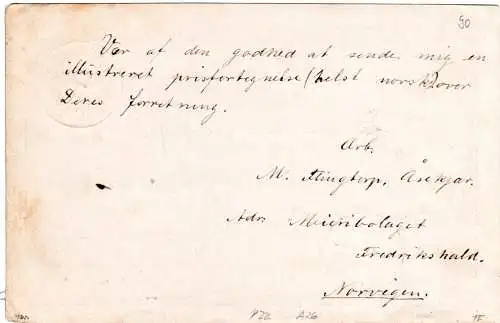 50
Vær af den godhed at sende mig en
illustreret prisfortegnelse (helst norsk) over
Deres forretning.
Arb.
M. Flingtorp, Åsekjær.
Adr. Meieribolaget
Fredrikshald.
Norvègen.
P22 A26